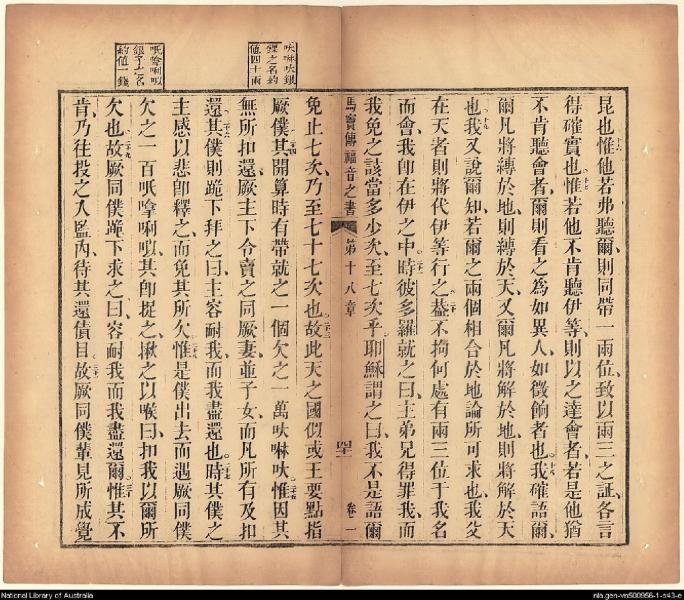 昆也惟他若弗聽爾則同帶一兩位致以兩三之証各言
得確實也惟若他不肯聽伊等則以之達會者若是他猶
不肯聽會者爾則看之為如異人如徵餉者也我確語爾
爾凡將縛於地則縛於天又爾凡將解於地則將解於天
也我又說爾知若爾之兩個相合於地論所可求也我父
在天者則將代伊等行之葢不拘何處有兩三位于我名
而會我即在伊之中時彼多羅就之曰主弟兄得罪我而
我免之該當多少次至七次乎耶穌謂之曰我不是語爾
馬竇傳福音之書
第十八章
卷一
免止七次乃至七十七次也故此天之國似或王要點指
厥僕其開算時有帶就之一個欠之一萬呔啉呔惟因其
無所扣還厥主下令賣之同厥妻並子女而凡所有及扣
還其僕則跪下拜之曰主容耐我而我盡還也時其僕之
主感以悲即釋之而免其所欠惟是僕出去而遇厥同僕
欠之一百呧嗱唎㕽其即捉之揪之以喉曰扣我以爾所
欠也故厥同僕跪下求之曰容耐我而我盡還爾惟其不
肯乃往投之入監內待其還債目故厥同僕輩見所成覺
呔啉呔銀
錁之名約
值四十兩
銀子之名
約值一錢
National Library of Australia
nla.gen-vn500956-1-s43-e